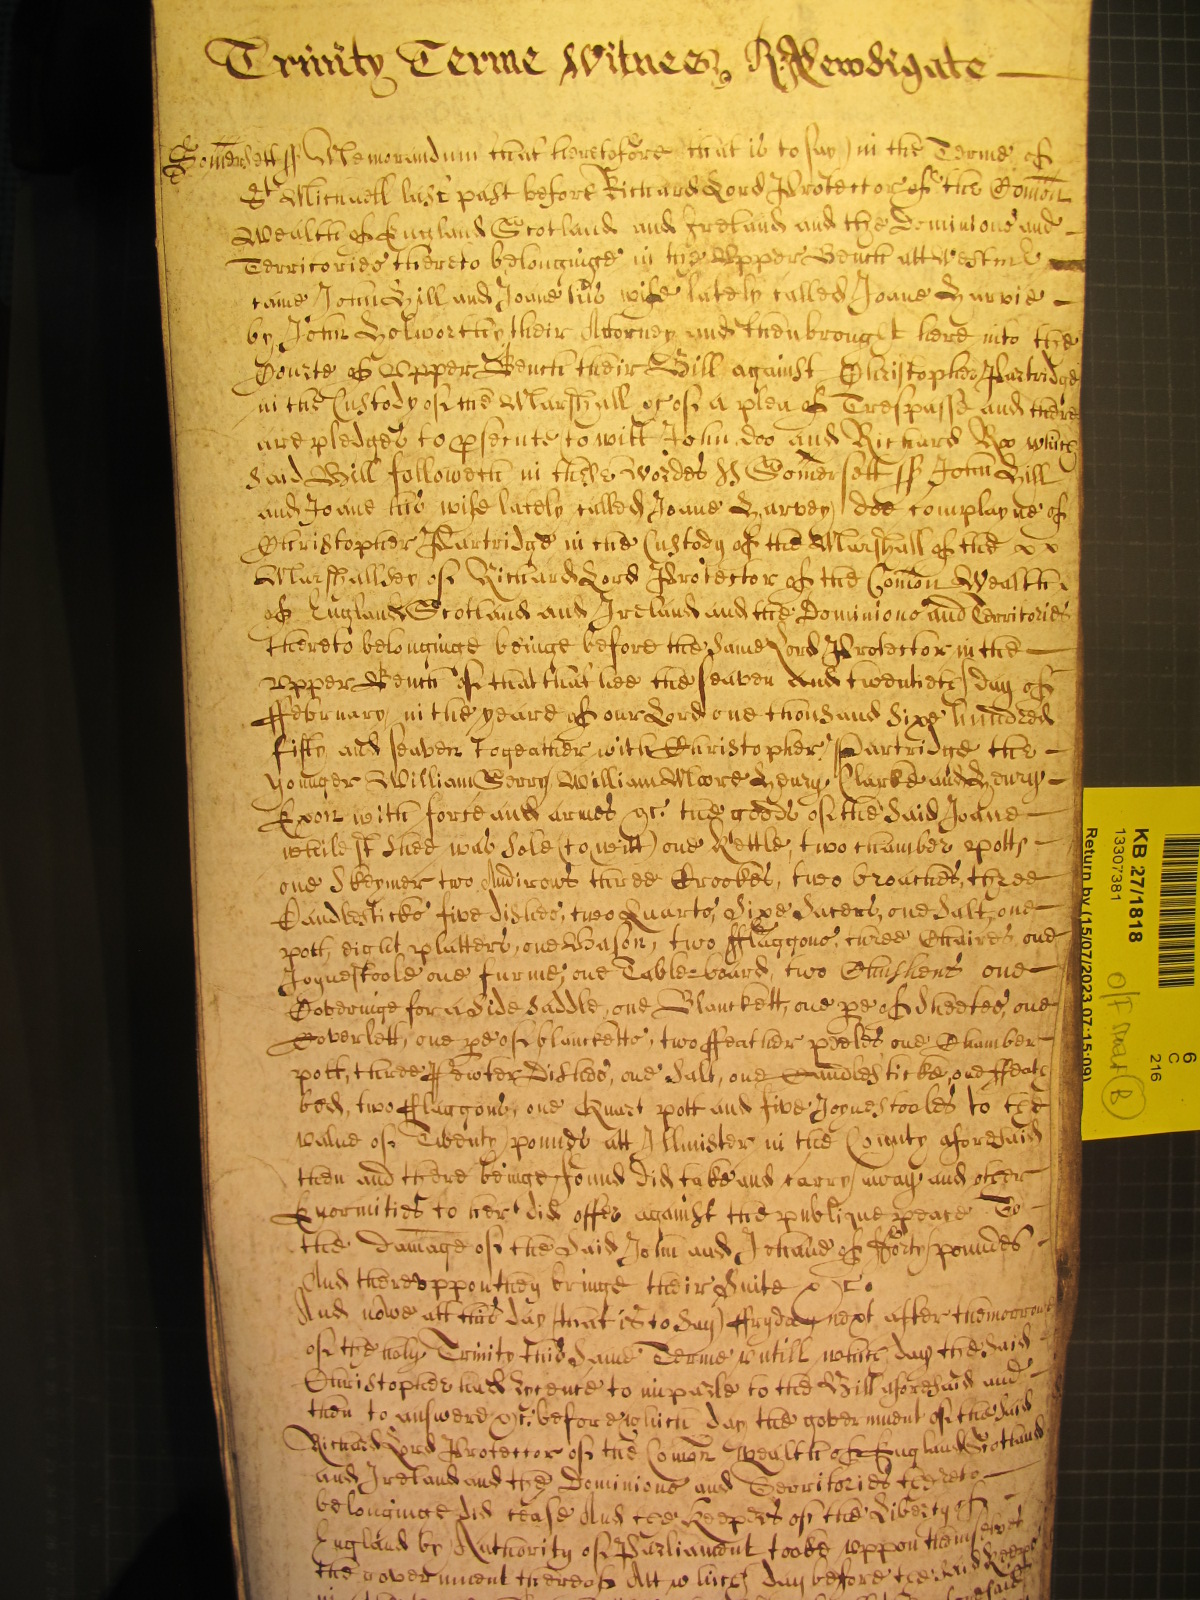 Trinity Terme Witnes RNewdigate
Somersett ss Memorandum that heretofore that is to say in the Terme of
St Michaell last past before Richard Lord Protector of the Comon
Wealth of England Scotland and Ireland and the Dominions and
Territories thereto belonginge in the Vpper Bench att Westmr
came John Hill and Joane his wife lately called Joane Harvie
by John Holworthy their Attorney and then brought here into the
Courte of Vpper Bench their Bill against Christopher Partridge
in the Custody of the Marshall &c of a plea of Trespasse and there
are pledges to psecute to witt John doo and Richard Roo which
said Bill followeth in these wordes ss Somersett ss John Hill
and Joane his wife lately called Joane Harvey doe complayne of
Christopher Partridge in the Custody of the Marshall of the x x
Marshallsey of Richard Lord Protector of the Comon Wealth
of England Scotland and Ireland and the Dominions and Territories
thereto belonginge beinge before the same Lord Protector in the
Vpper Bench of that that hee the seaven and twentieth day of
ffebruary in the yeare of our Lord one thousand sixe hundred
fifty and seaven togeather with Christopher Partridge the
younger William Terry William Moore Henry Clarke and Henry
Exon with force and armes &c. the goods of the said Joane
whilest shee was sole (to witt) one Kettle, two chamber potts
one Skeymer two Andirons three Crookes, two broaches, three
Candlesticks five dishes, two Quarts, Sixe Sacers, one Salt, one
pott, eight platters, one Bason, two fflaggons, three Chaires, one
Joynestoole one furme, one Tableboard, two Chushens one
Coveringe for a Side Saddle, one Blanckett, one pe of Sheetes, one
Coverlett, one pe of blancketts, two ffeather pieles one Chamber
pott, three Pewter Dishes, one Salt, one Candlesticke, one ffeath
bed, two fflaggons, one Quart pott and five Joynestooles to the
value of Twenty pounds att Illmister in the County aforesaid
then and there beinge found did take and carry away and other
Enormities to her did offer against the publique peace To
the damage of the said John and Johane of fforty poundes
And therevppon they bringe their Suite x &c
And nowe att this day (that is to say) ffryday next after the morrowe
of the holy Trinity this same Terme vntill which day the said
Christopher had lycence to imparle to the Bill aforesaid and
then to answere &c. before which day the government of the said
Richard Lord Protector of the Comon Wealth of England Scotland
and Ireland and the Dominions and Territories thereto
belonginge did cease And the Keepers of the Liberty of
England by Authority of Parliament tooke vppon themselves
the government thereof Att which day before the said Keeps
KB 27/1818
13307381
Return by (15/07/2023 07:15:09)
6
C
216
B